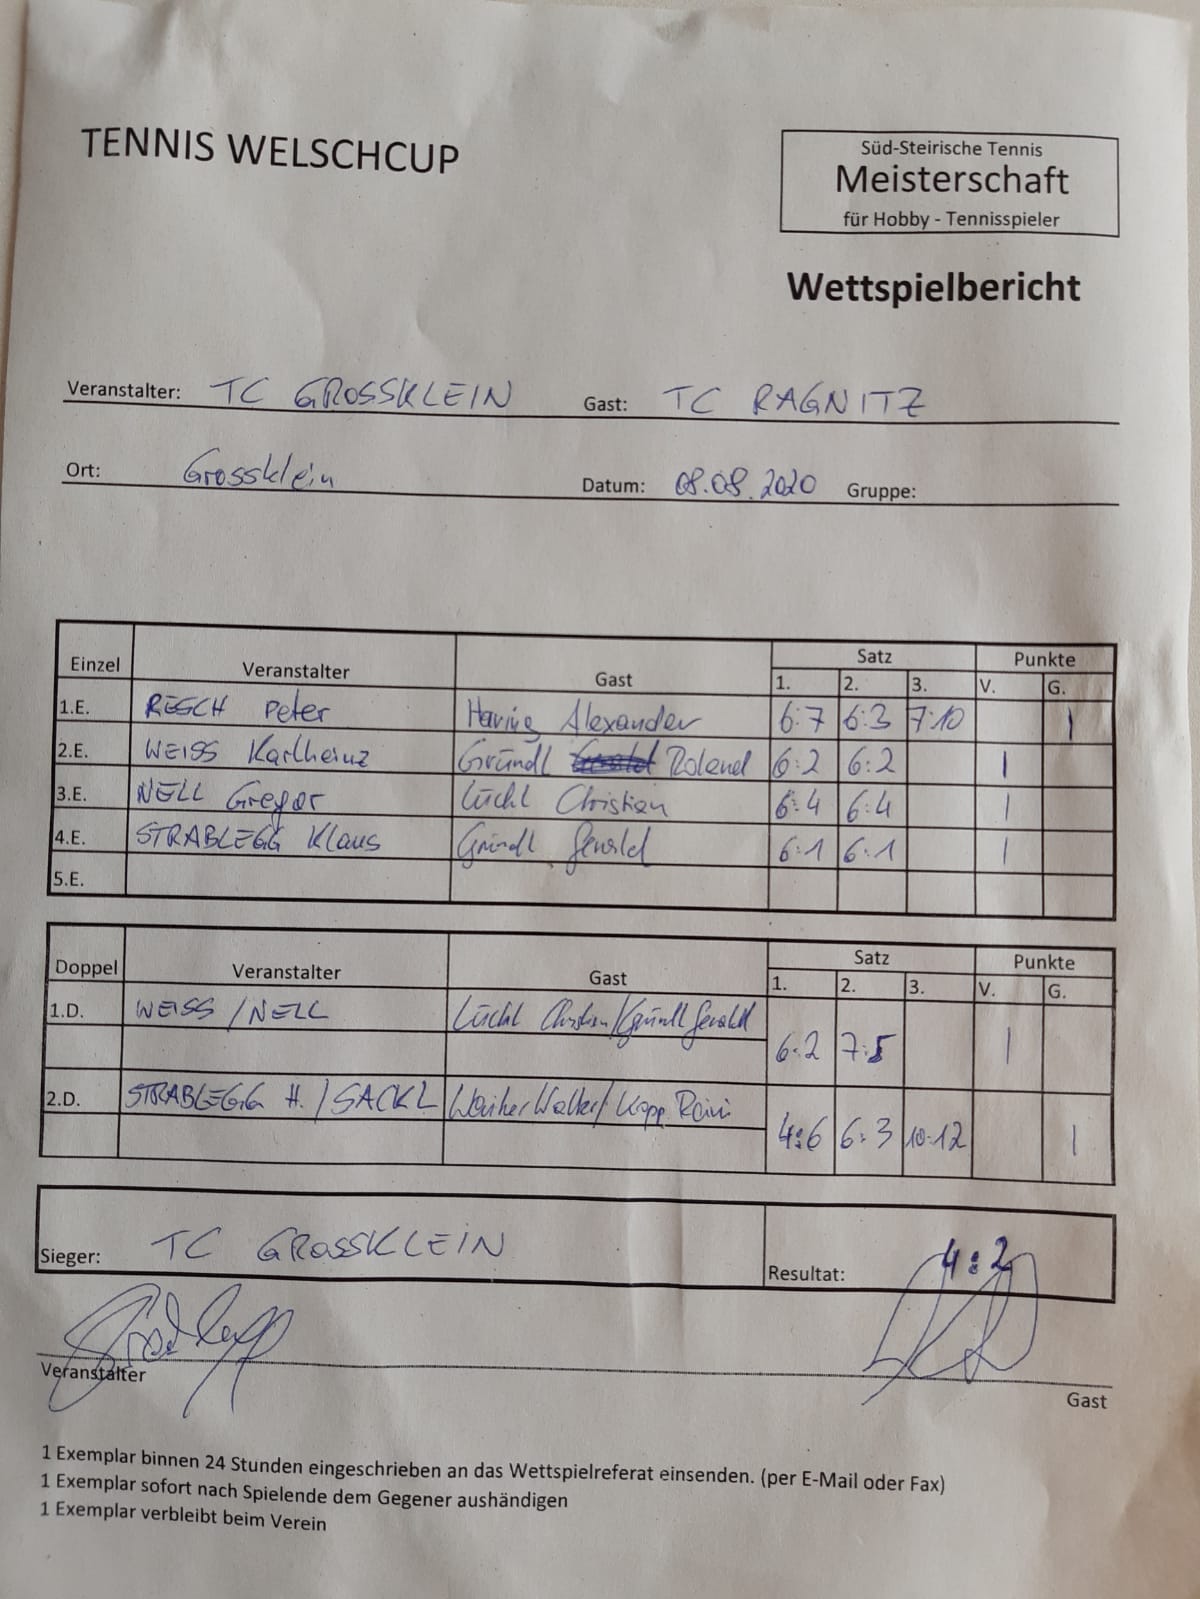 TENNIS WELSCHCUP
Süd-Steirische Tennis
Meisterschaft
für Hobby - Tennisspieler
Wettspielbericht
Veranstalter: TC GROSSKLEIN Gast: TC RAGNITZ
Ort: Grossklein Datum: 08.08.2020 Gruppe:
Einzel Veranstalter Gast Satz Punkte
1. 2. 3. V. G.
1.E. RESCH Peter Alexander 6:7 6:3 7:10 1
2.E. WEISS Karlheinz Gründl Roland 6:2 6:2 1
3.E. NELL Gregor Lückl Christian 6:4 6:4 1
4.E. STRABLEGG Klaus Gründl Gerald 6:1 6:1 1
5.E.
Doppel Veranstalter Gast Satz Punkte
1. 2. 3. V. G.
1.D. WEISS / NELL Lückl Christian / Gründl Gerald
6:2 7:5 1
2.D. STRABLEGG H. / SACKL Walter / Kapp
4:6 6:3 10:12 1
Sieger: TC GROSSKLEIN Resultat: 4:2
Veranstalter
Gast
1 Exemplar binnen 24 Stunden eingeschrieben an das Wettspielreferat einsenden. (per E-Mail oder Fax)
1 Exemplar sofort nach Spielende dem Gegener aushändigen
1 Exemplar verbleibt beim Verein